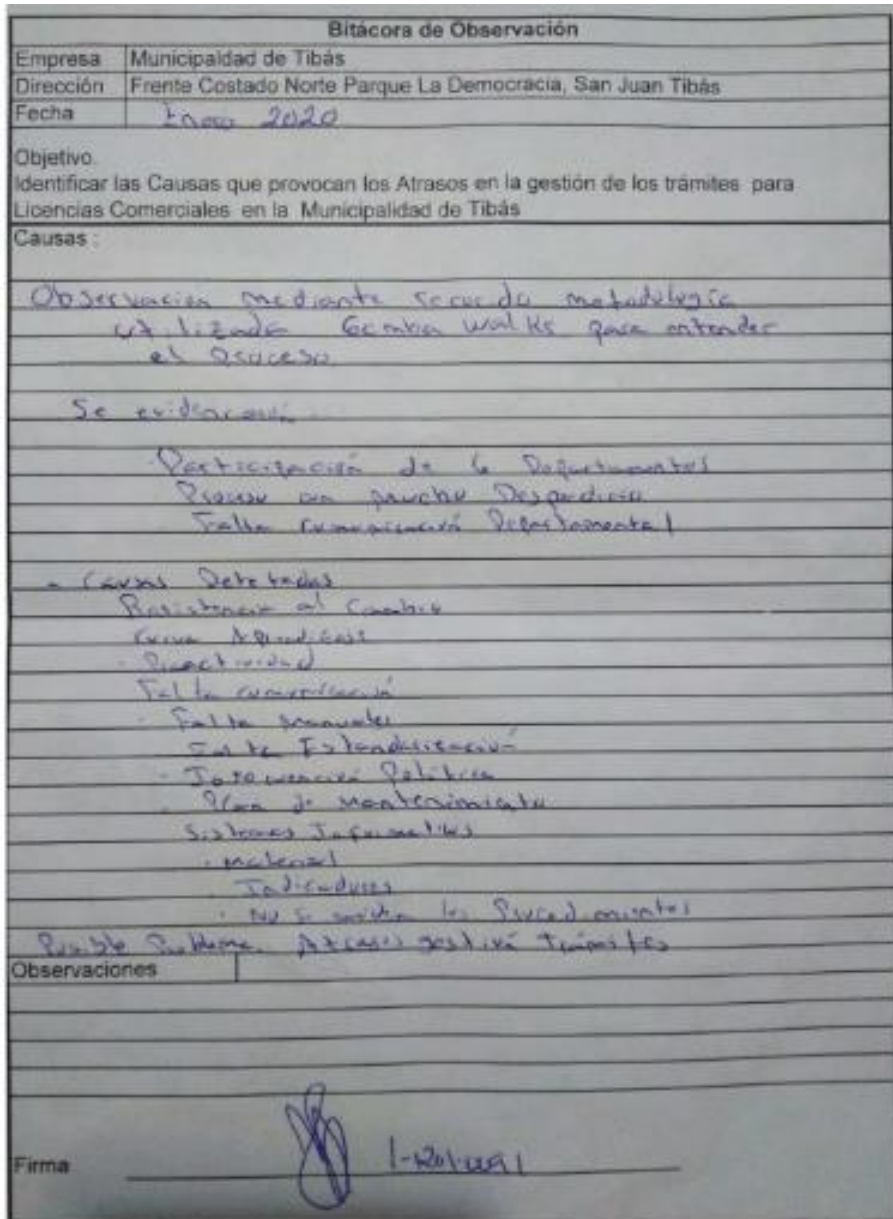 Bitácora de Observación
Empresa Municipaldad de Tibás
Dirección Frente Costado Norte Parque La Democracia, San Juan Tibás
Fecha Enero 2020
Objetivo.
Identificar las Causas que provocan los Atrasos en la gestión de los trámites para
Licencias Comerciales en la Municipalidad de Tibás
Causas :
Observación mediante metodología
utilizada Gemba Walks para entender
el Proceso
Se
Participación de 6 Departamentos
Proceso con mucho Desperdicio
Falta comunicación Departamental
- Causas Detectadas
Resistencia al Cambio
Curva Aprendizaje
Falta comunicación
Falta manuales
Estandarización
Política
Plan de Mantenimiento
Sistemas
Material
Indicadores
No se los Procedimientos
Posible Problema. Atrasos gestión Trámites
Observaciones
Firma